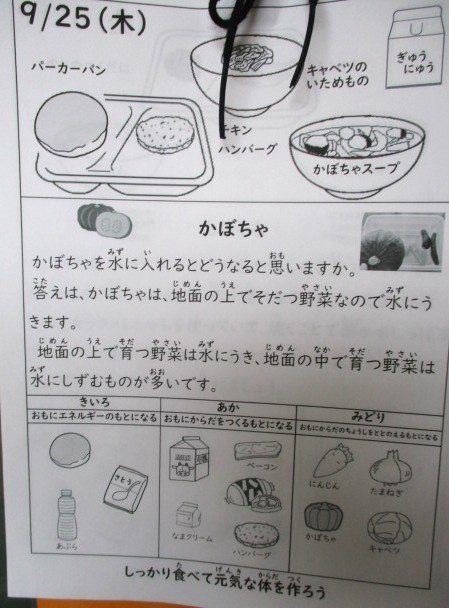 9/25(木)
パーカーパン
キャベツの
いためもの
ぎゅう
にゅう
チキン
ハンバーグ
かぼちゃスープ
かぼちゃ
かぼちゃを水に入れるとどうなると思いますか。
答えは、かぼちゃは、地面の上でそだつ野菜なので水にう
きます。
地面の上で育つ野菜は水にうき、地面の中で育つ野菜は
水にしずむものが多いです。
きいろ
おもにエネルギーのもとになる
あか
おもにからだをつくるもとになる
みどり
おもにからだのちょうしをととのえるもとになる
さとう
あぶら
MILK
ベーコン
なまクリーム
ハンバーグ
にんじん
たまねぎ
かぼちゃ
キャベツ
しっかり食べて元気な体を作ろう